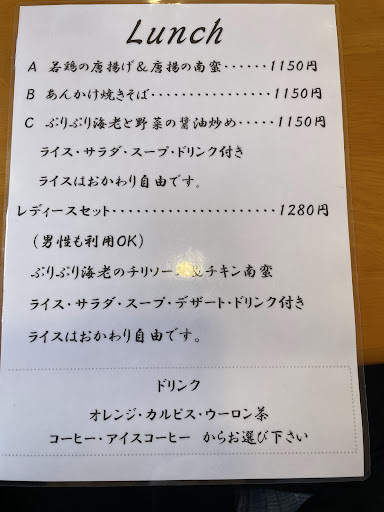 Lunch
A 若鶏の唐揚げ＆唐揚の南蜜······1150円
B あんかけ焼きそば···············1150円
C ぷりぷり海老と野菜の醤油炒め·····1150円
ライス・サラダ・スープ・ドリンク付き
ライスはおかわり自由です。
レディースセット······················1280円
（男性も利用OK）
ぷりぷり海老のチリソース＆チキン南蜜
ライス・サラダ・スープ・デザート・ドリンク付き
ライスはおかわり自由です。
ドリンク
オレンジ・カルビス・ウーロン茶
コーヒー・アイスコーヒー からお選び下さい